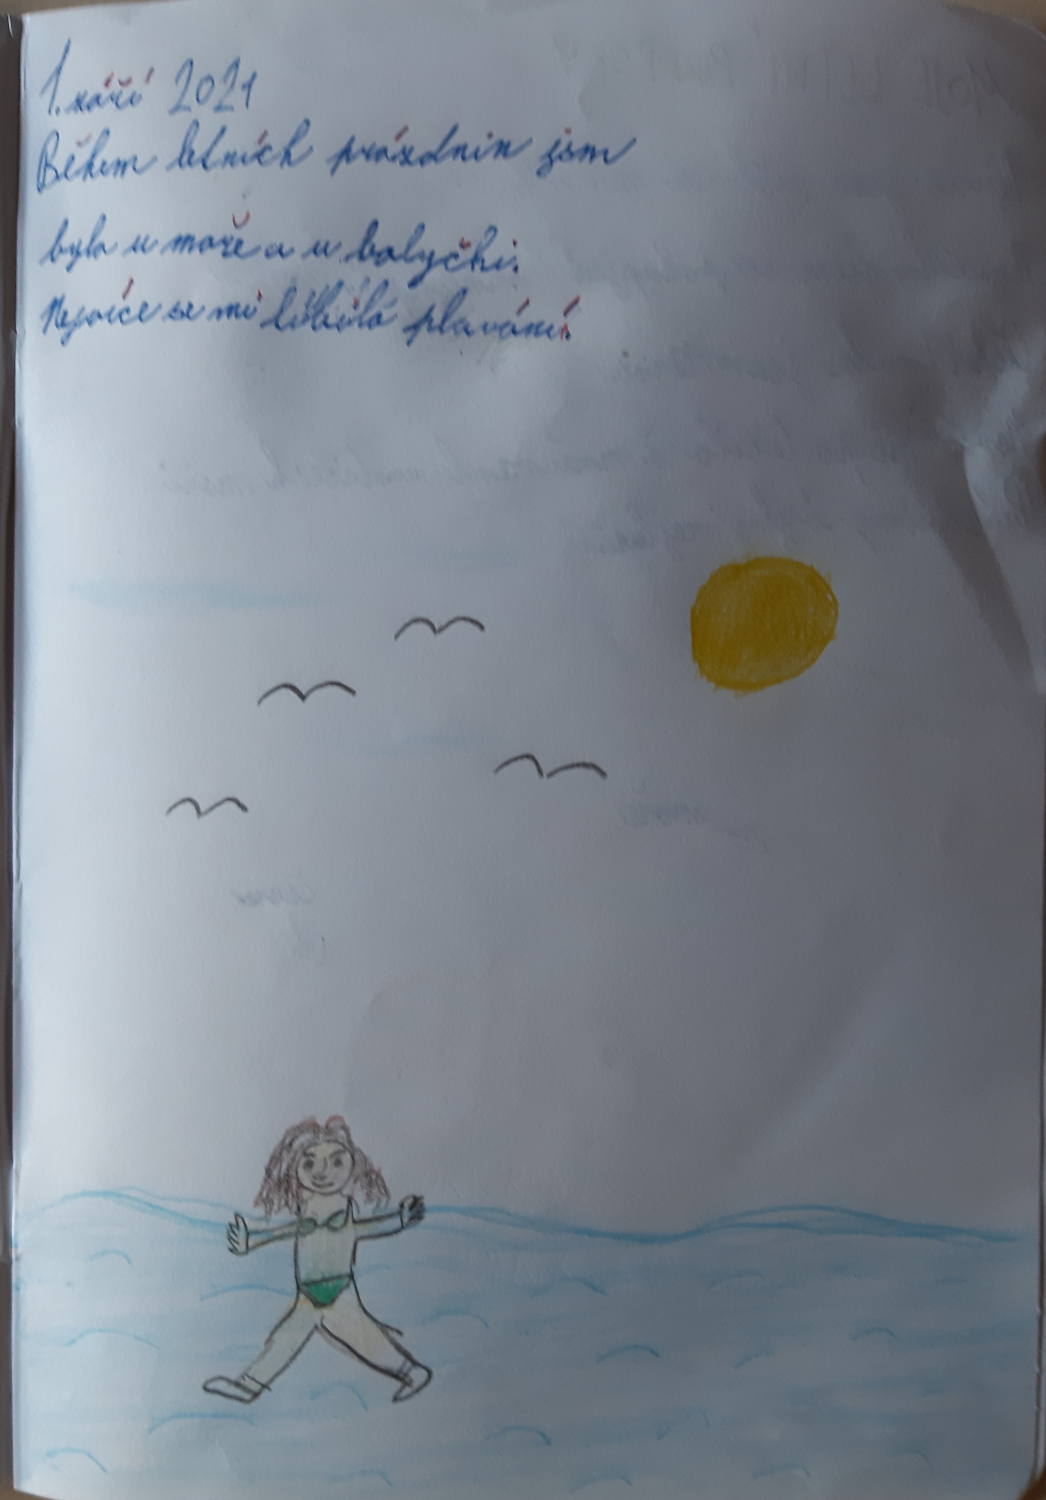 1. září 2021
Během letních prázdnin jsem
byla u moře a u babyčki.
Nejvíce se mi líbíló plavání.